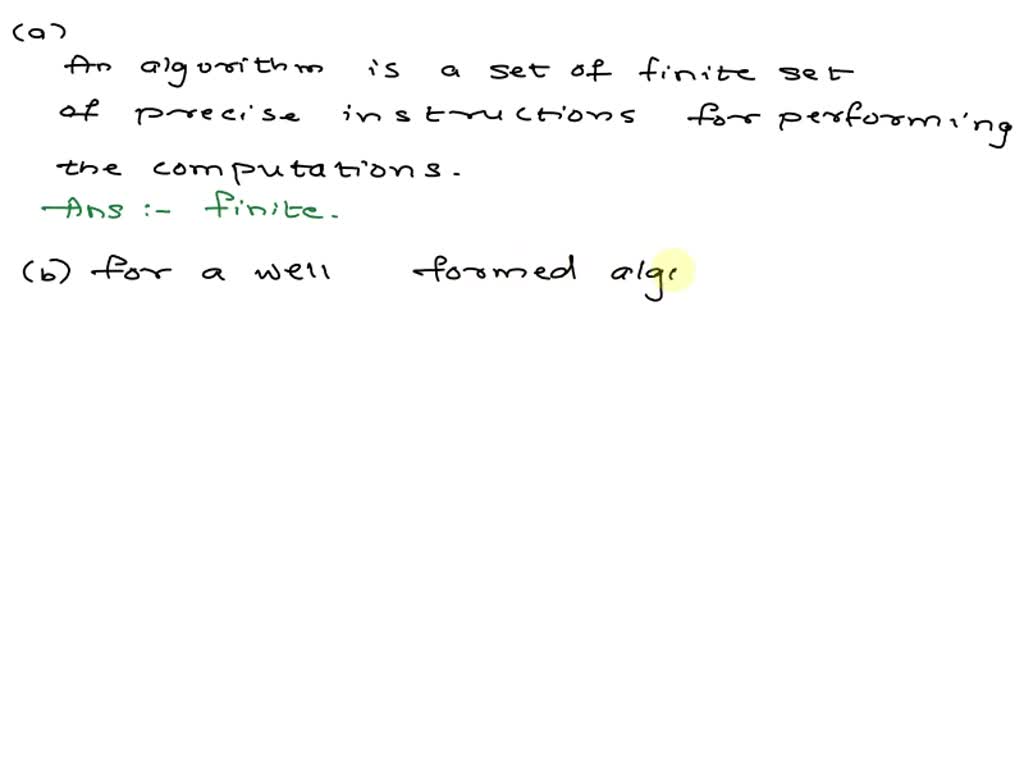 (a)
An algorithm is a set of finite set
of precise instructions for performing
the computations.
Ans :- finite.
(b) for a well formed algo